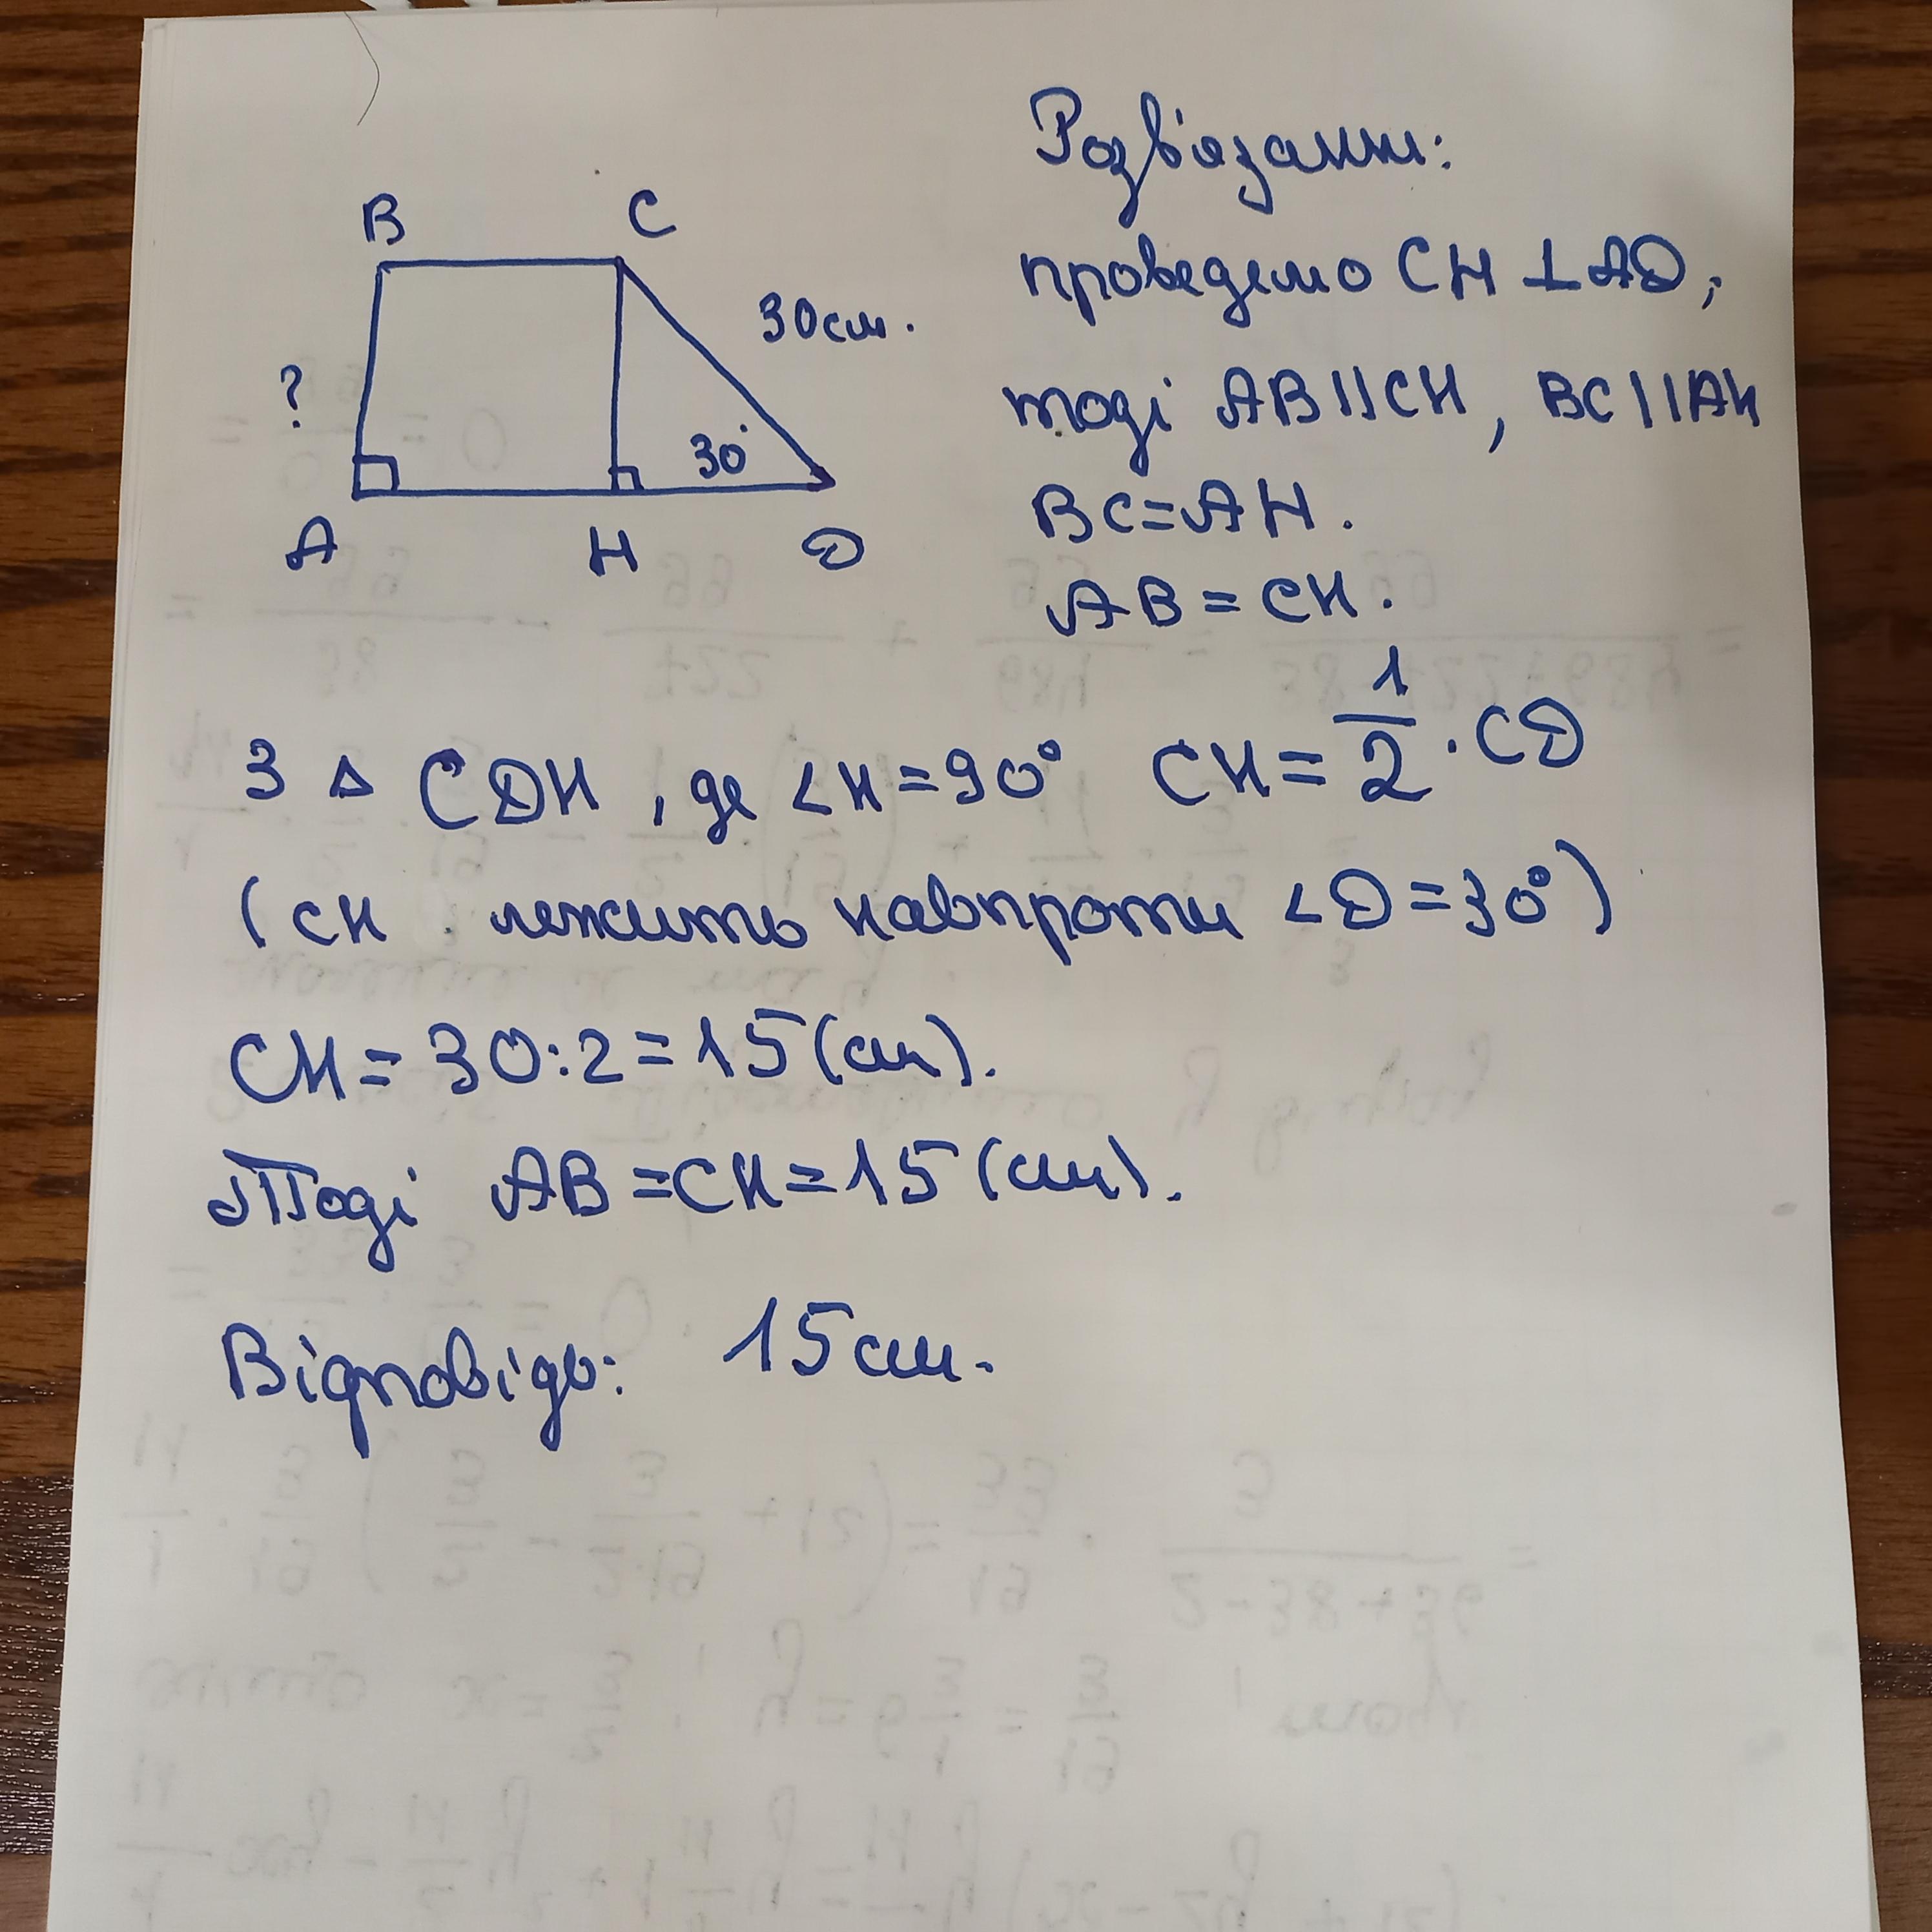 B C
30см.
?
30°
A H D
Розв'язання:
проведемо CH ⊥ AD,
тоді AB || CH, BC || AH
BC = AH.
AB = CH.
З △ CDH, де ∠H = 90° CH = 1/2 · CD
(CH лежить навпроти ∠D = 30°)
CH = 30:2 = 15 (см).
Тоді AB = CH = 15 (см).
Відповідь: 15 см.